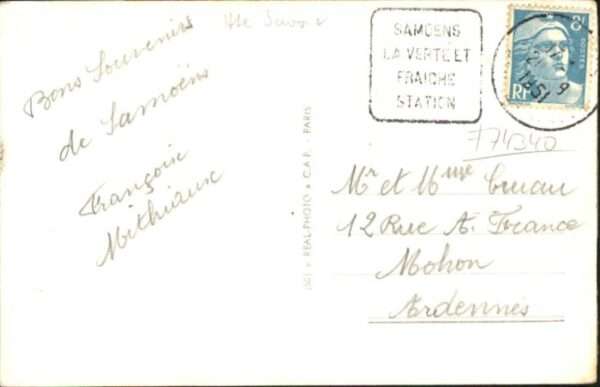 Hte Savoie
Bons Souvenirs
de Samoëns
Françoise
Mithieux
SAMOENS
LA VERTE ET
FRAICHE
STATION
8F
POSTES
RF
1951
74340
REAL-PHOTO
C.A.P. - PARIS
Mr et Mme
12 Rue A. France
Mohon
Ardennes